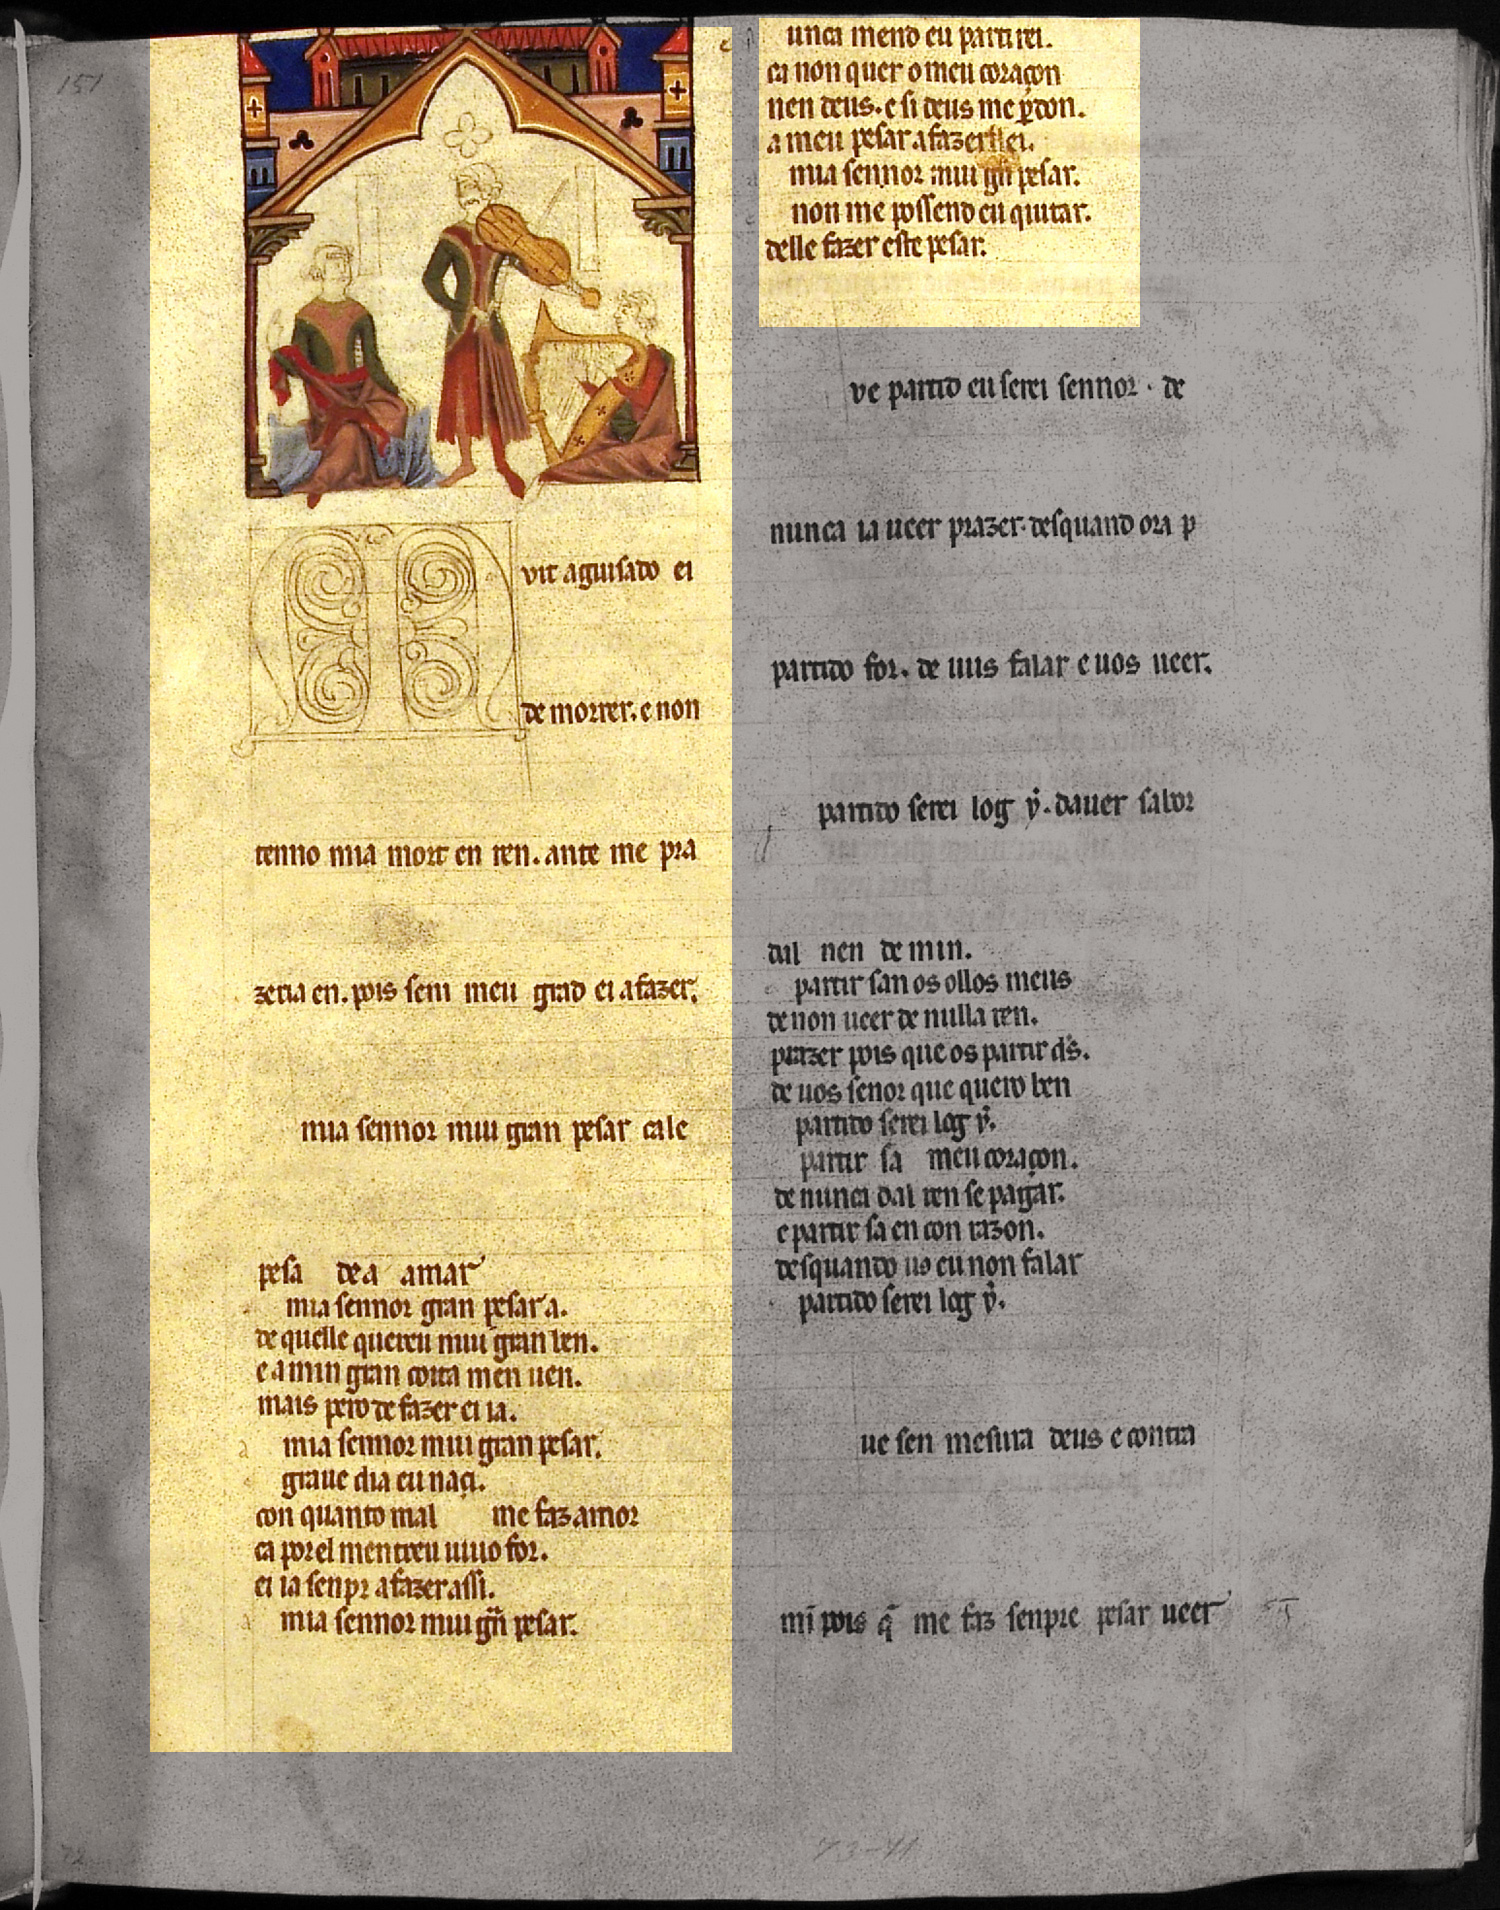 151
vit aguisado ei
de morrer. e non
tenno mia mort en ren. ante me pra
zeria en. pois sem meu grad ei a fazer.
mia sennor mui gran pesar cale
pesa de a amar
mia sennor gran pesar a.
de quelle quereu mui gran ben.
e a min gran coita men uen.
mais pero de fazer ei ia.
mia sennor mui gran pesar.
graue dia eu naçi.
con quanto mal me faz amor
ca por el mentreu uiuo for.
ei ia senpr a fazer assi.
mia sennor mui gñ pesar.
72
unca mend eu partirei.
ca non quer o meu coraçon
nen deus. e si deus me ꝑdon.
a meu pesar. a fazerllei.
mia sennor mui gñ pesar.
non me possend eu quitar.
delle fazer este pesar.
ve partid eu serei sennor · de
nunca ia ueer prazer. desquand ora p
partido for. de uus falar e uos ueer.
partido serei log y̓. dauer sabor
dal nen de min.
partir san os ollos meus
de non ueer de nulla ren.
prazer pois que os partir d̄s.
de uos senor que quero ben
partido serei log y̓.
partir sa meu coraçon.
de nunca dal ren se pagar.
e partir sa en con razon.
desquando uo eu non falar
partido serei log y̓.
ue sen mesura deus e contra
mī pois q̄ me faz senpre pesar ueer
73-41